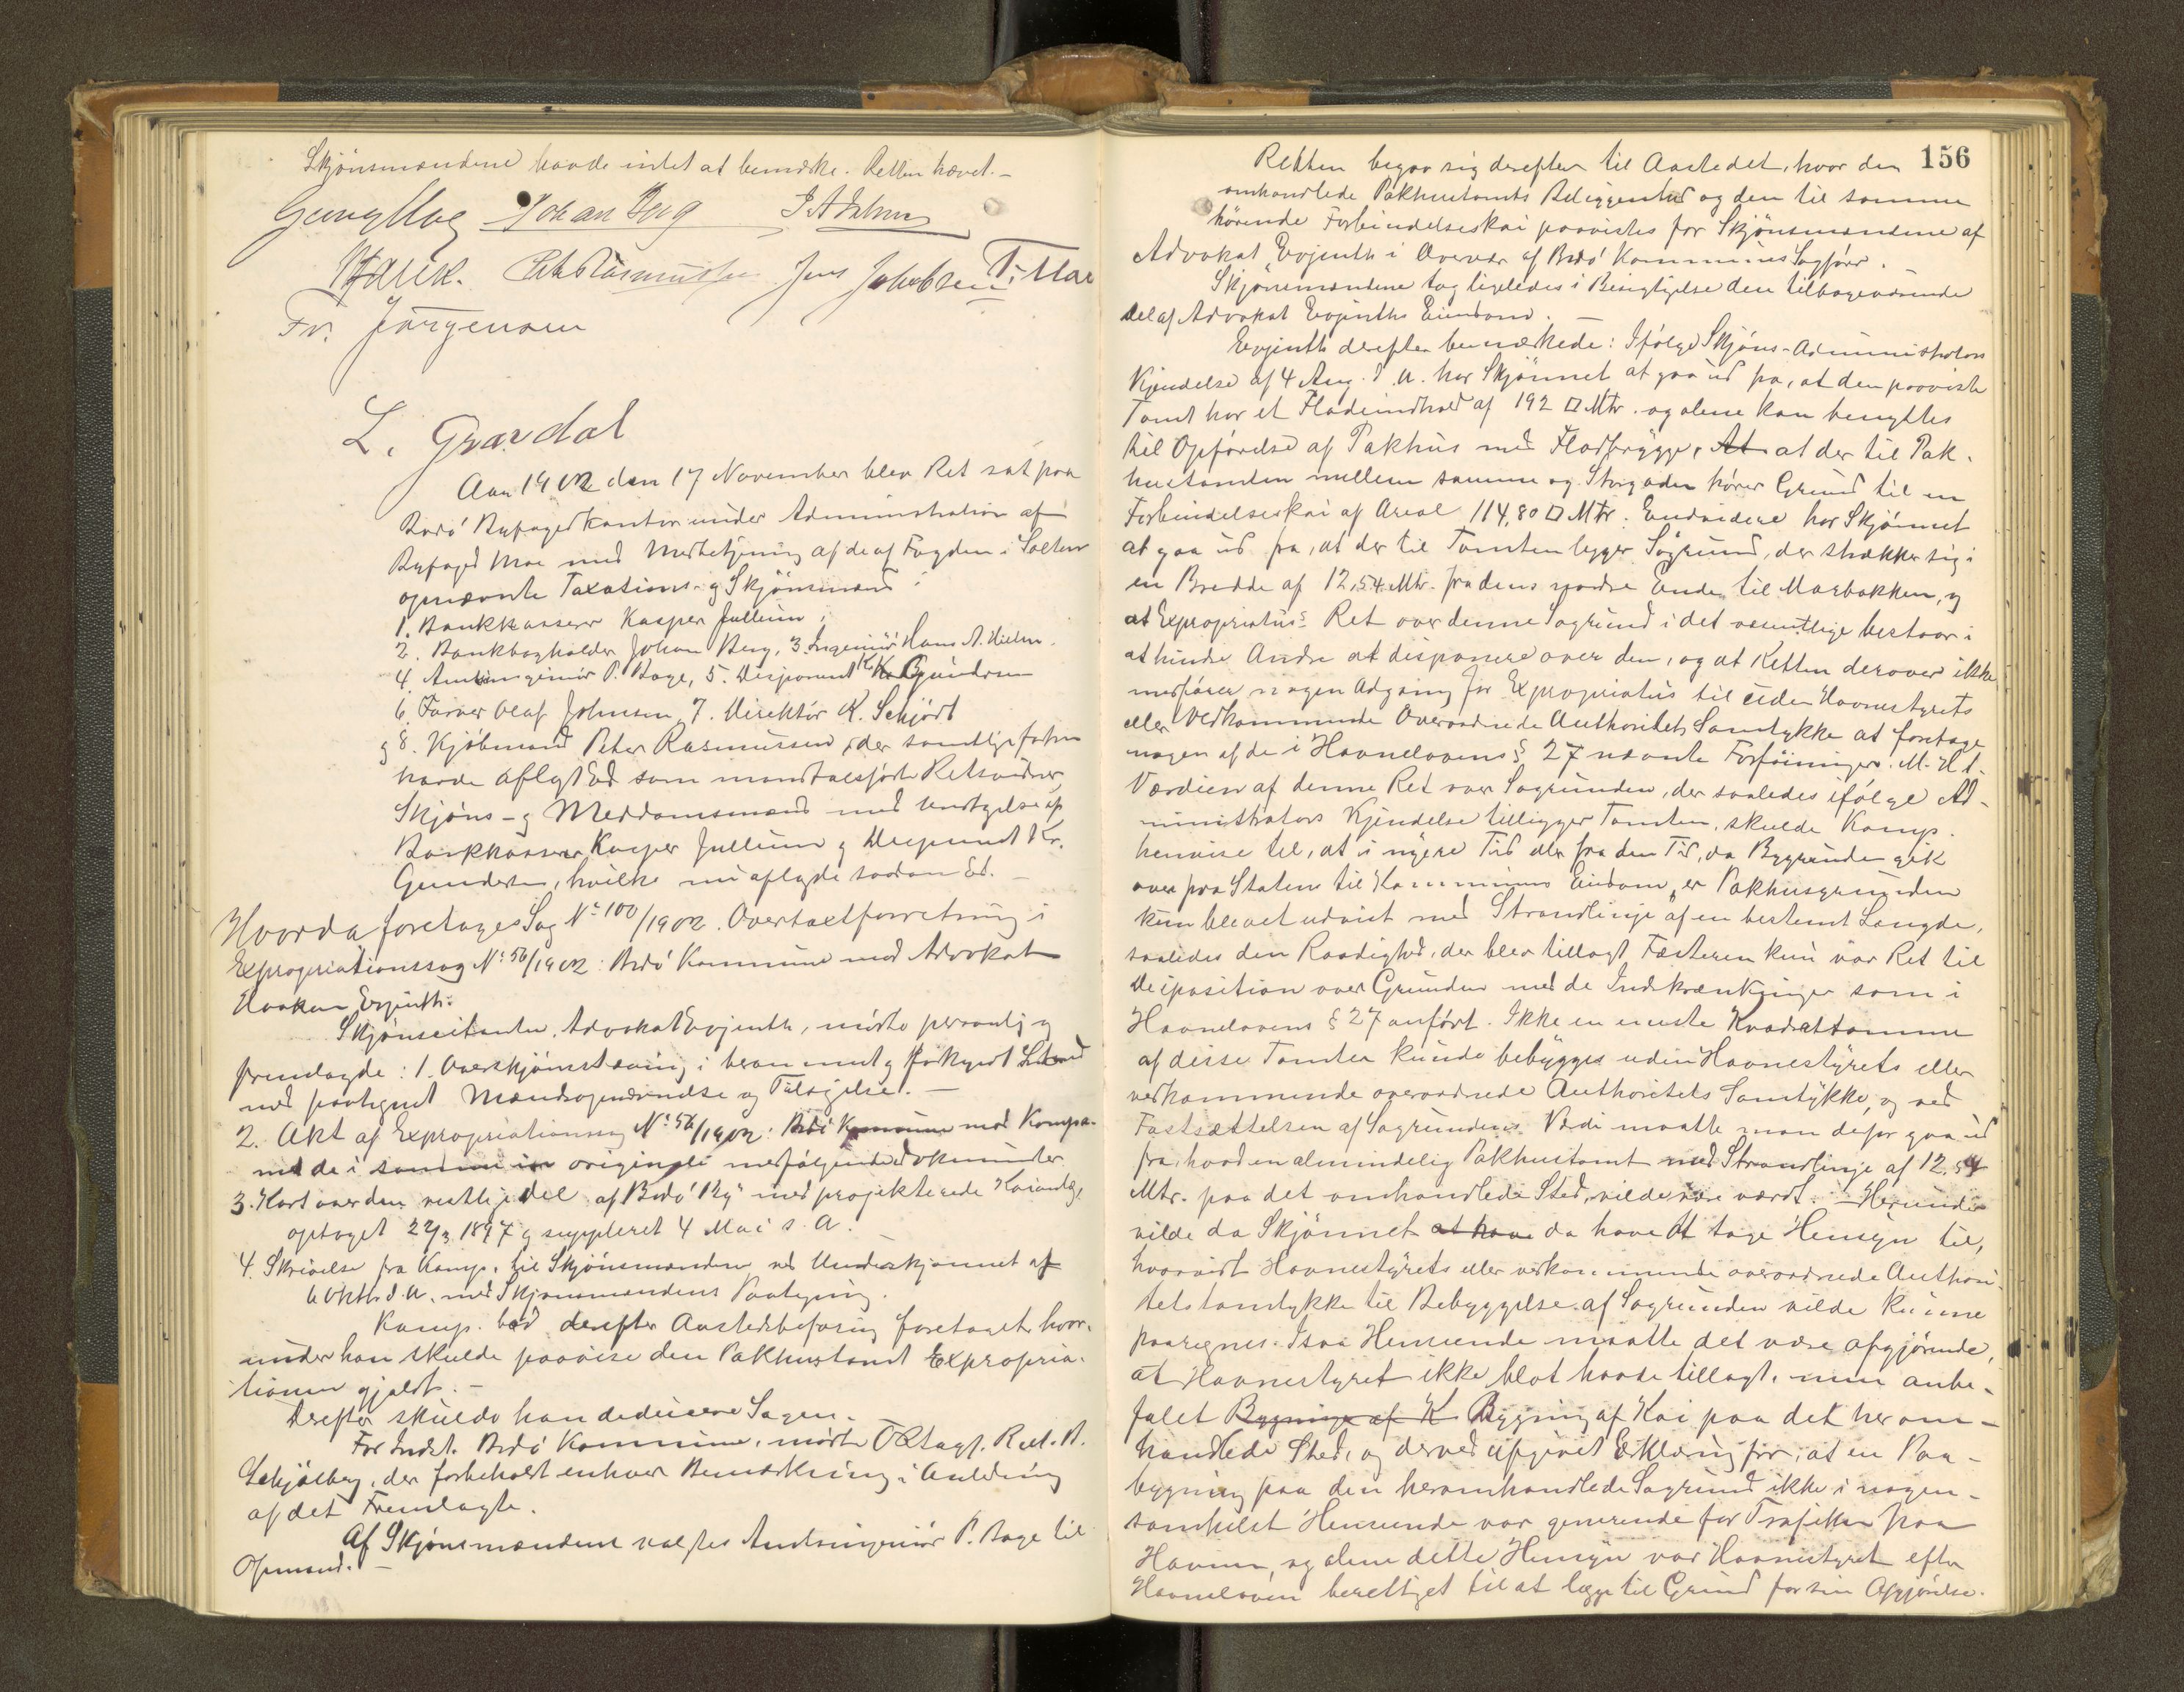 Skjönsmændene havde intet at bemærke. Retten hævet. –
Johan Berg
Peter Rasmussen Jens Jakobsen
Fr. Jörgensen
L. Grøndal
Aar 1902 den 17 November blev Ret sat paa
Bodö Byfogedkontor under Administration af
Byfoged Moe med Medbetjening af de af Fogden i Salten
opnævnte Taxations- og Skjönsmænd:
1. Bankkasserer Kasper Jullum,
2. Bankbogholder Johan Berg, 3. Ingeniör Hans A.
4. Amtsingeniör P. Bage, 5. Disponent Kr. Gundersen
6. Farver Oluf Johnsen, 7. Direktör K. Schjödt
og 8. Kjöbmand Peter Rasmussen, der samtlige
havde aflagt Ed som mandtalsförte Retsvidner,
Skjöns- og Meddomsmænd med Undtagelse af
Bankkasserer Kasper Jullum og Disponent Kr.
Gundersen, hvilke nu aflagde saadan Ed. –
Hvorda foretages Sag No 100/1902. Overtaxtforretning i
Expropriationssag No 56/1902: Bodö Kommune mod Advokat
Haakon Evjenth:
Skjönscitanten, Advokat Evjenth, mödte personlig og
fremlagde: 1. Overskjönstævning i beram met og forkyndt Stand
med paategnet Mandsopnævnelse og Tilsigelse. –
2. Akt af Expropriationssag No 56/1902: Bodö Kommune mod Kompa-
med de i samme in originali medfölgende Dokumenter
3. Kart over den vestlige Del af Bodö By med projekterede Kaianlæg,
optaget 22/3 1897 og suppleret 4 Mai s. A.
4. Skrivelse fra Komp. til Skjönsmændene ved Underskjønnet af
6 Oktb. d. A. med Skjönsmændenes Paategning.
Komp. bad derefter Aastedsbefaring foretaget, hvor-
under han skulde paavise den Pakhustomt Expropria-
tionen gjaldt. –
Derefter skulde han deducere Sagen.
For Indst. Bodö Kommune, mödte O.R.Sagf.
Schjölberg, der forbeholdt enhver Bemærkning i Anledning
af det Fremlagte.
Af Skjönsmændene valgtes Amtsingeniör P. Bage til
Opmand. –
156
Retten begav sig derefter til Aastedet, hvor den
omhandlede Pakhustomts Beliggenhed og den til samme
hörende Forbindelseskai paavistes for Skjönsmændene af
Advokat Evjenth i Overvær af Bodö Kommunes Sagförer.
Skjönsmændene tog ligeledes i Besigtigelse den tilbageværende
Del af Advokat Evjenths Eiendom. –
Evjenth derefter bemærkede: Ifölge Skjöns-Administrators
Kjendelse af 4 Aug. d. A. har Skjönnet at gaa ud fra, at den paaviste
Tomt har et Fladeindhold af 192 □ Mtr. og alene kan benyttes
til Opförelse af Pakhus med Fladbrygge, At at der til Pak-
hustomten mellem samme og Storgaden hörer Grund til en
Forbindelseskai af Areal 114,80 □ Mtr. Endvidere har Skjönnet
at gaa ud fra, at der til Tomten ligger Sögrund, der strækker sig i
en Bredde af 12,54 Mtr. fra dens nordre Ende til Marbakken, og
at Expropriatus's Ret over denne Sögrund i det væsentlige bestaar i
at hindre Andre at disponere over den, og at Retten derover ikke
medförer nogen Adgang for Expropriatus til uden Havnestyrets
eller Vedkommende Overordnede Authoritets Samtykke at foretage
nogen af de i Havnelovens § 27 nævnte Forföininger. M. H. t.
Værdien af denne Ret over Sögrunden, der saaledes ifölge Ad-
ministrators Kjendelse tilligger Tomten, skulde Komp.
henvise til, at i nyere Tid alt fra den Tid, da Bygrunden gik
over fra Staten til Kommunens Eiendom, er Pakhusgrunden
kun blevet udvist med Strandlinje af en bestemt Længde,
saaledes den Raadighed, der blev tillagt Fæsteren kun var Ret til
Disposition over Grunden med de Indskrænkninger som i
Havnelovens § 27 anfört. Ikke en eneste Kvadrattomme
af disse Tomter kunde bebygges uden Havnestyrets eller
vedkommende overordnede Authoritets Samtykke, og ved
Fastsættelsen af Sögrundens Værdi maatte man derfor gaa ud
fra, hvad en almindelig Pakhustomt med Strandlinje af 12,54
Mtr. paa det omhandlede Sted, vilde være værdt. – Herunder
vilde da Skjönnet at have da have at tage Hensyn til,
hvorvidt Havnestyrets eller vedkommende overordnede Authori-
tets Samtykke til Bebyggelse af Sögrunden vilde kunne
paaregnes. I saa Henseende maatte det være afgjörende,
at Havnestyret ikke blot havde tilladt, men anbe-
falet Bygninge af K Bygning af Kai paa det her om-
handlede Sted, og derved afgivet Erklæring for, at en Paa-
bygning paa den heromhandlede Sögrund ikke i nogen-
somhelst Henseende var generende for Trafiken paa
Havnen, og alene dette Hensyn var Havnestyret efter
Havneloven berettiget til at lægge til Grund for sin Afgjörelse.